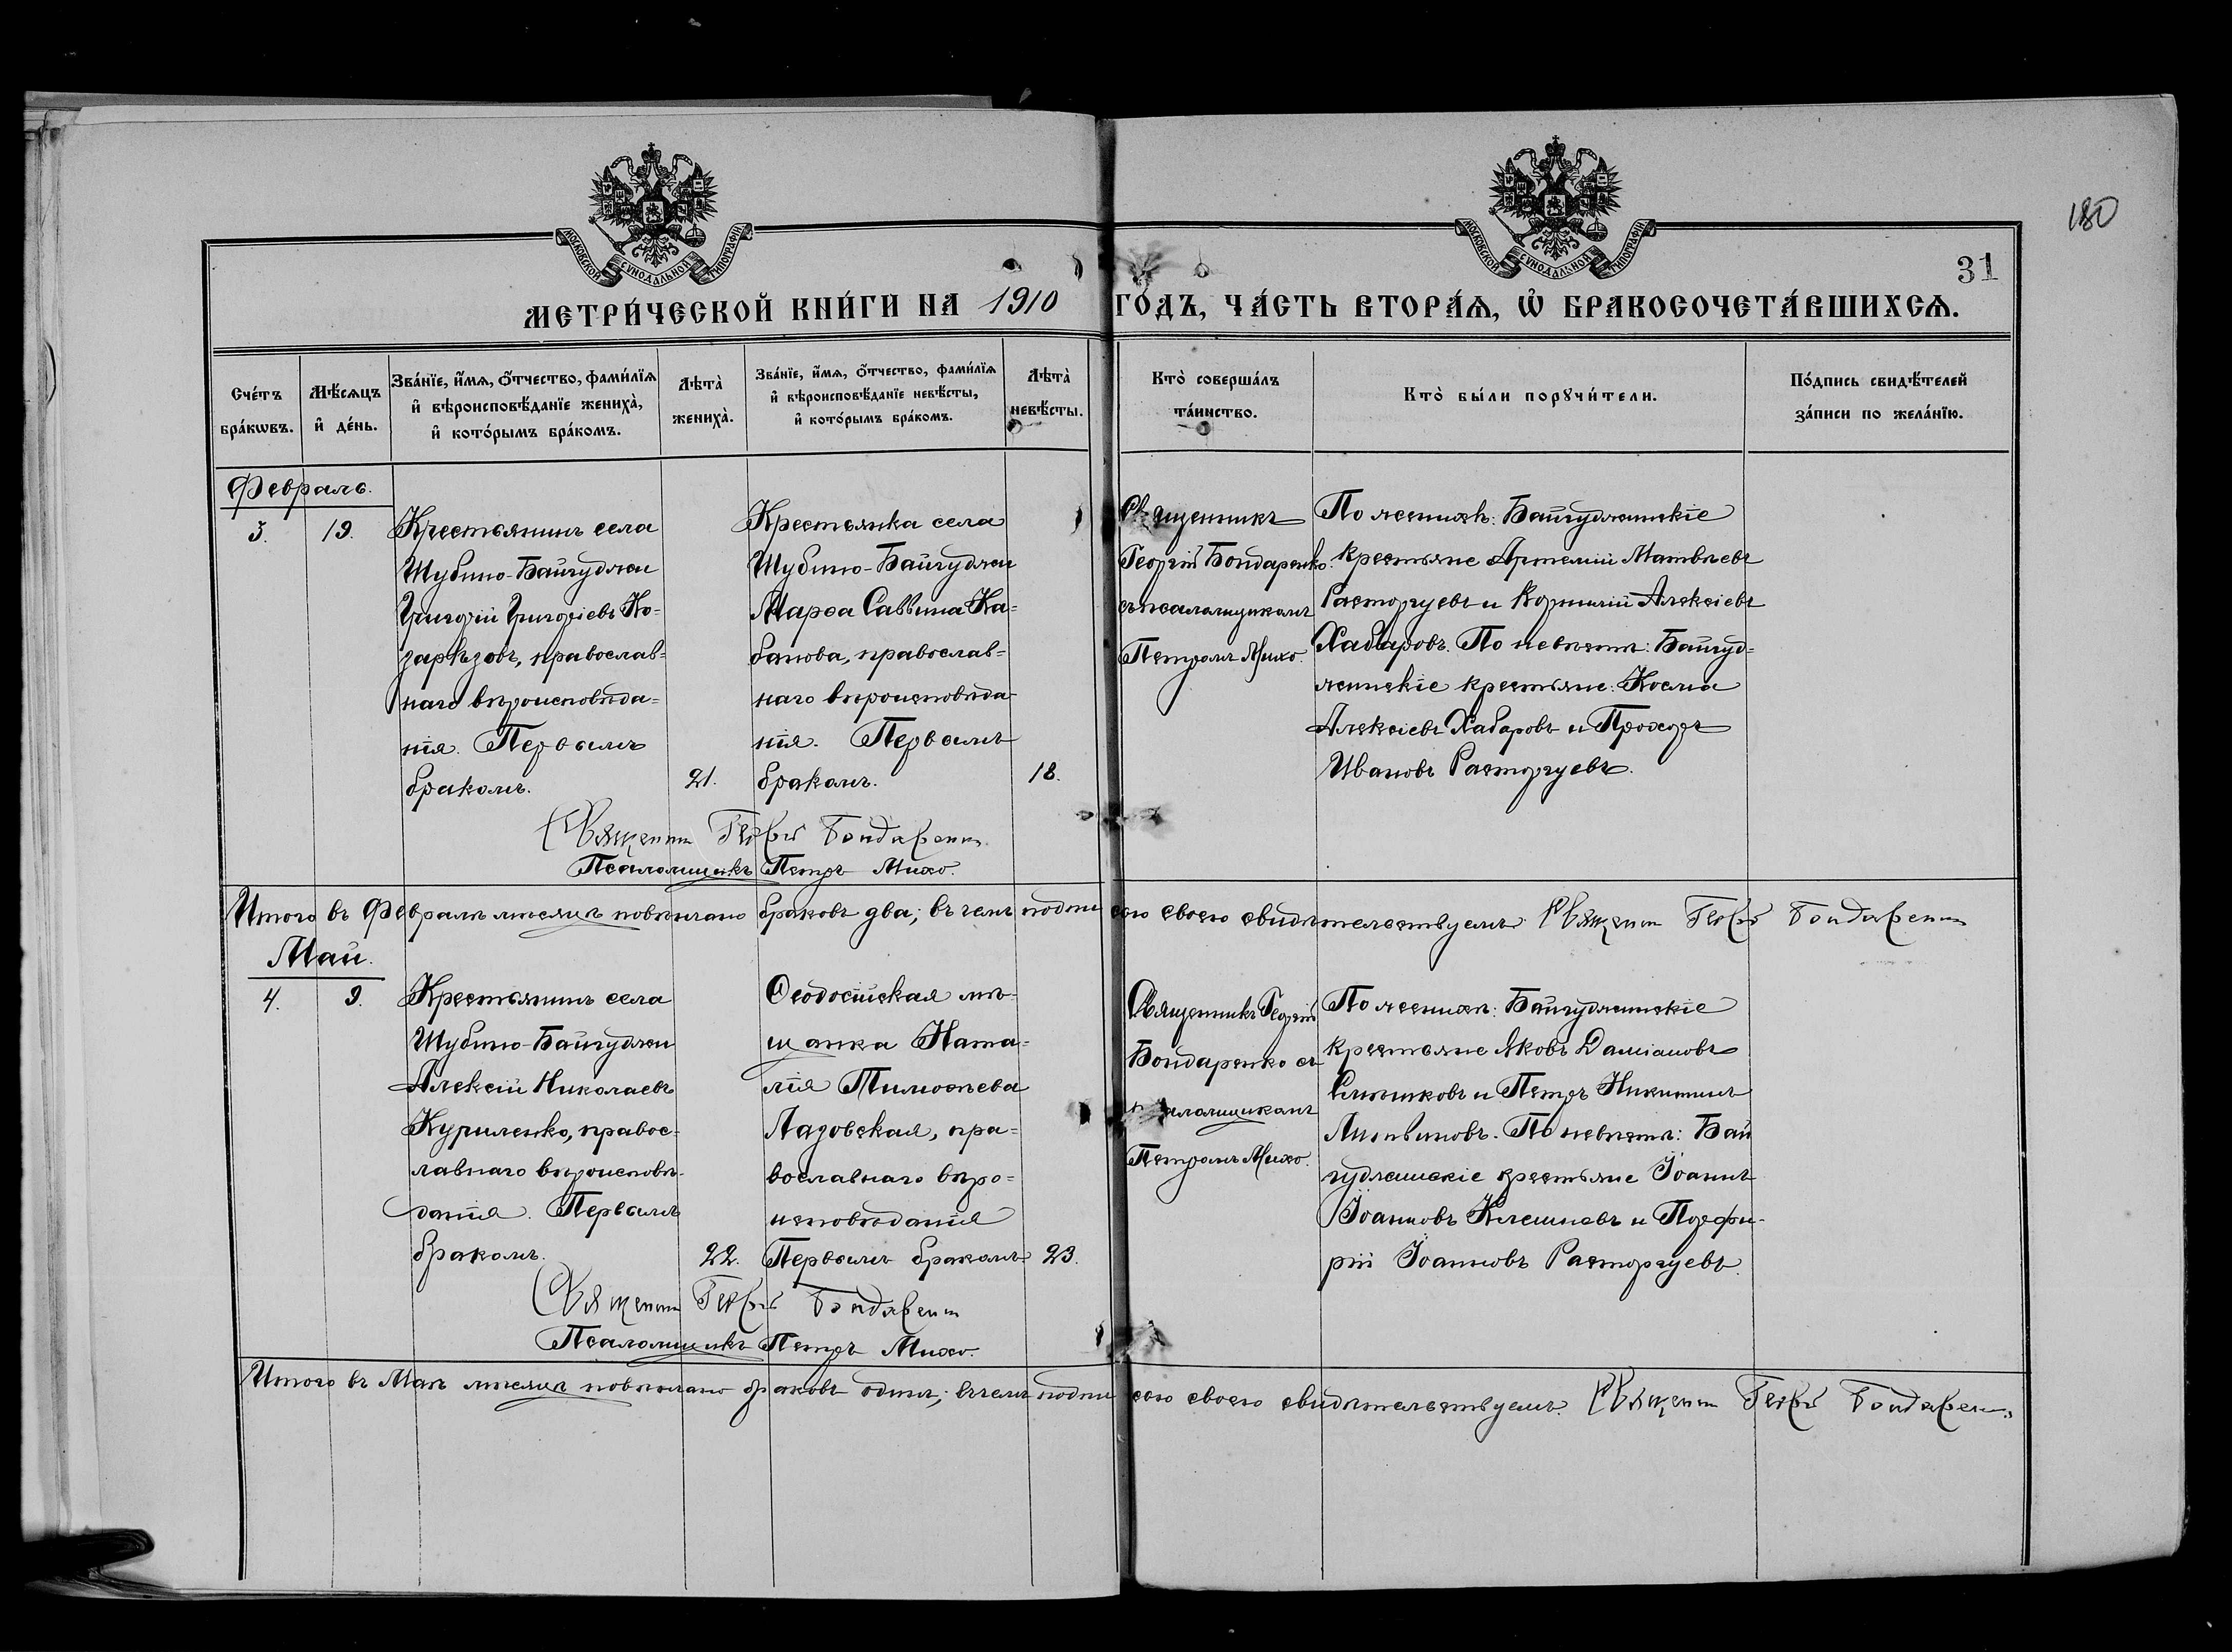 180
31
МОСКОВСКОЙ СѴНОДАЛЬНОЙ ТИПОГРАФІИ
МОСКОВСКОЙ СѴНОДАЛЬНОЙ ТИПОГРАФІИ
МЕТРИ́ЧЕСКОЙ КНИ́ГИ НА 1910 ГО́ДЪ, ЧА́СТЬ ВТОРА́Ѧ, Ѡ҆ БРАКОСОЧЕТА́ВШИХСѦ.
Сче́тъ бра́кѡвъ.
Мѣ́сѧцъ и҆ де́нь.
Зва́нїе, и҆́мѧ, ѻ҆́тчество, фами́лїѧ и҆ вѣроисповѣ́данїе жениха̀, и҆ кото́рымъ бра́комъ.
Лѣта̀ жениха̀.
Зва́нїе, и҆́мѧ, ѻ҆́тчество, фами́лїѧ и҆ вѣроисповѣ́данїе невѣ́сты, и҆ кото́рымъ бра́комъ.
Лѣта̀ невѣ́сты.
Кто̀ соверша́лъ та́инство.
Кто̀ бы́ли порꙋчи́тели.
По́дпись свидѣ́телей за́писи по жела́нїю.
Февраль.
3.
19.
Крестьянинъ села
Шубино-Байгуджи
Григорій Григоріевъ Ко-
зарѣзовъ, православ-
наго вѣроисповѣда-
нія. Первымъ
бракомъ.
21.
Крестьянка села
Шубино-Байгуджи
Марѳа Саввина Ка-
банова, православ-
наго вѣроисповѣда-
нія. Первымъ
бракомъ.
18.
Священникъ
Георгій Бондаренко
съ псаломщикомъ
Петромъ Михо.
По женихѣ: Байгуджинскіе
крестьяне Артемій Матвѣевъ
Расторгуевъ и Корнилій Алексіевъ
Хабаровъ. По невѣстѣ: Байгуд-
жинскіе крестьяне: Косма
Алексіевъ Хабаровъ и Прохоръ
Ивановъ Расторгуевъ.
Священник Георгій Бондаренко
Псаломщикъ Петръ Михо.
Итого въ Февралѣ мѣсяцѣ повѣнчано браковъ два; въ чемъ подписью своею свидѣтельствуемъ: Священник Георгій Бондаренко
Май.
4.
9.
Крестьянинъ села
Шубино-Байгуджи
Алексій Николаевъ
Куриленко, правос-
лавнаго вѣроисповѣ-
данія. Первымъ
бракомъ.
22.
Ѳеодосійская мѣ-
щанка Ната-
лія Тимоѳеева
Лазовская, пра-
вославнаго вѣро-
исповѣданія
Первымъ бракомъ
23.
Священникъ Георгій
Бондаренко съ
псаломщикомъ
Петромъ Михо.
По женихѣ: Байгуджинскіе
крестьяне Яковъ Даміановъ
и Петръ Никитинъ
Литвиновъ. По невѣстѣ: Бай
гуджинскіе крестьяне Іоаннъ
Іоанновъ Клешневъ и Порфи-
рій Іоанновъ Расторгуевъ.
Священник Георгій Бондаренко
Псаломщикъ Петръ Михо.
Итого въ Маѣ мѣсяцѣ повѣнчано браковъ одинъ; въ чемъ подписью своею свидѣтельствуемъ. Священник Георгій Бондаренко